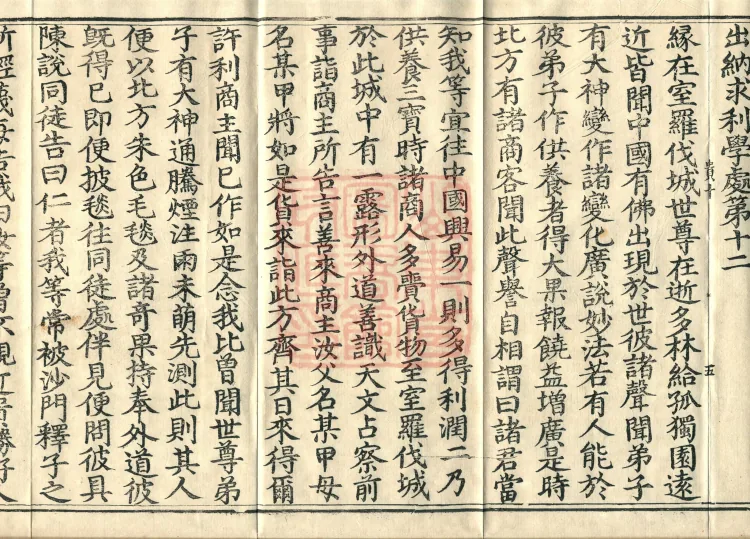 出納求利學處第十二
緣在室羅伐城世尊在逝多林給孤獨園遠
近皆聞中國有佛出現於世彼諸聲聞弟子
有大神變作諸變化廣說妙法若有人能於
彼弟子作供養者得大果報饒益增廣是時
五
北方有諸商客聞此聲譽自相謂曰諸君當
知我等宜往中國興易一則多得利潤二乃
供養三寶時諸商人多賷貨物至室羅伐城
於此城中有一露形外道善識天文占察前
事詣商主所告言善來商主汝父名某甲母
名某甲將如是貨來詣此方齊其日來得爾
許利商主聞已作如是念我比曾聞世尊弟
子有大神通騰煙注雨未萌先測此則其人
便以北方朱色毛毯及諸奇果持奉外道彼
旣得已即便披毯往同徒處伴見便問彼具
陳說同徒告曰仁者我等常被沙門釋子之